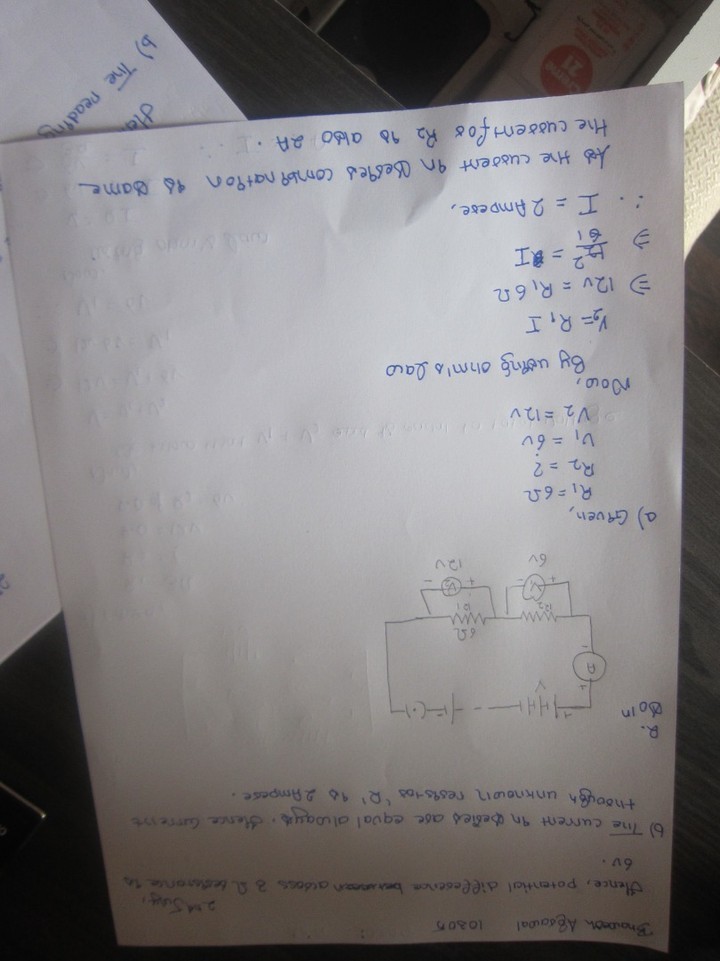 Agrawal 10305
2nd July,
Hence, potential difference between across 3 Ω resistance is
6V.
b) The current in series are equal always. Hence current
through unknown resistor 'R' is 2 Ampere.
2.
Soln
V
A
6Ω
R2
R1
V1
V2
6V
12V
a) Given,
R1 = 6Ω
R2 = ?
V1 = 6V
V2 = 12V
Now,
By using ohm's law
V2 = R1 I
⇒ 12V = R1 6Ω
⇒ 12 2 / 6 1 = I
∴ I = 2 Ampere,
As the current in series combination is same
the current for R2 is also 2A.
b) The reading